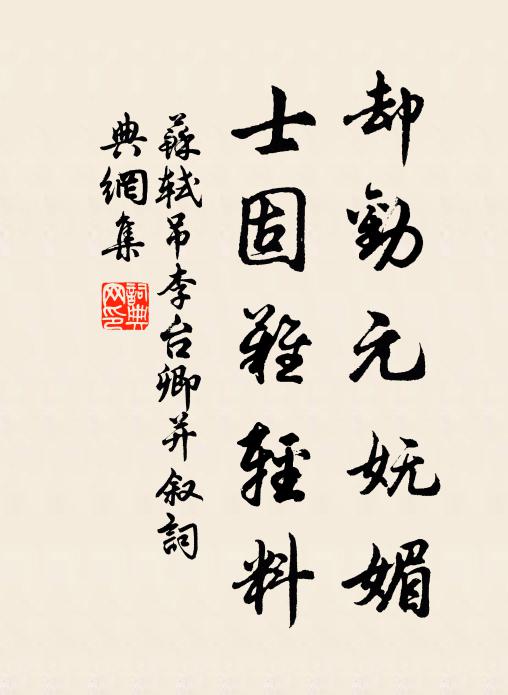 却勤元妩媚
士固難輕料
蘇軾吊李台卿并叙詞
典網集
詞典
网印